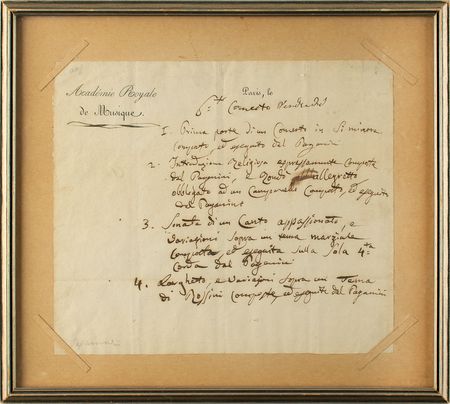 Académie Royale
de Musique.
Paris, le
6.to Concerto Venerdì
1. Prima parte di un Concerto in Si minore
composto, ed eseguito dal Paganini
2. Introduzione Religiosa espressamente composta
dal Paganini, e Rondò allegretto
obbligato ad un Campanello composto, ed eseguito
dal Paganini
3. Sonata di un Canto appassionato, e
Variazioni sopra un tema marziale
composta, ed eseguita sulla sola 4.ta
Corda dal Paganini
4. Larghetto, e Variazioni sopra un Tema
di Rossini composte, ed eseguite dal Paganini